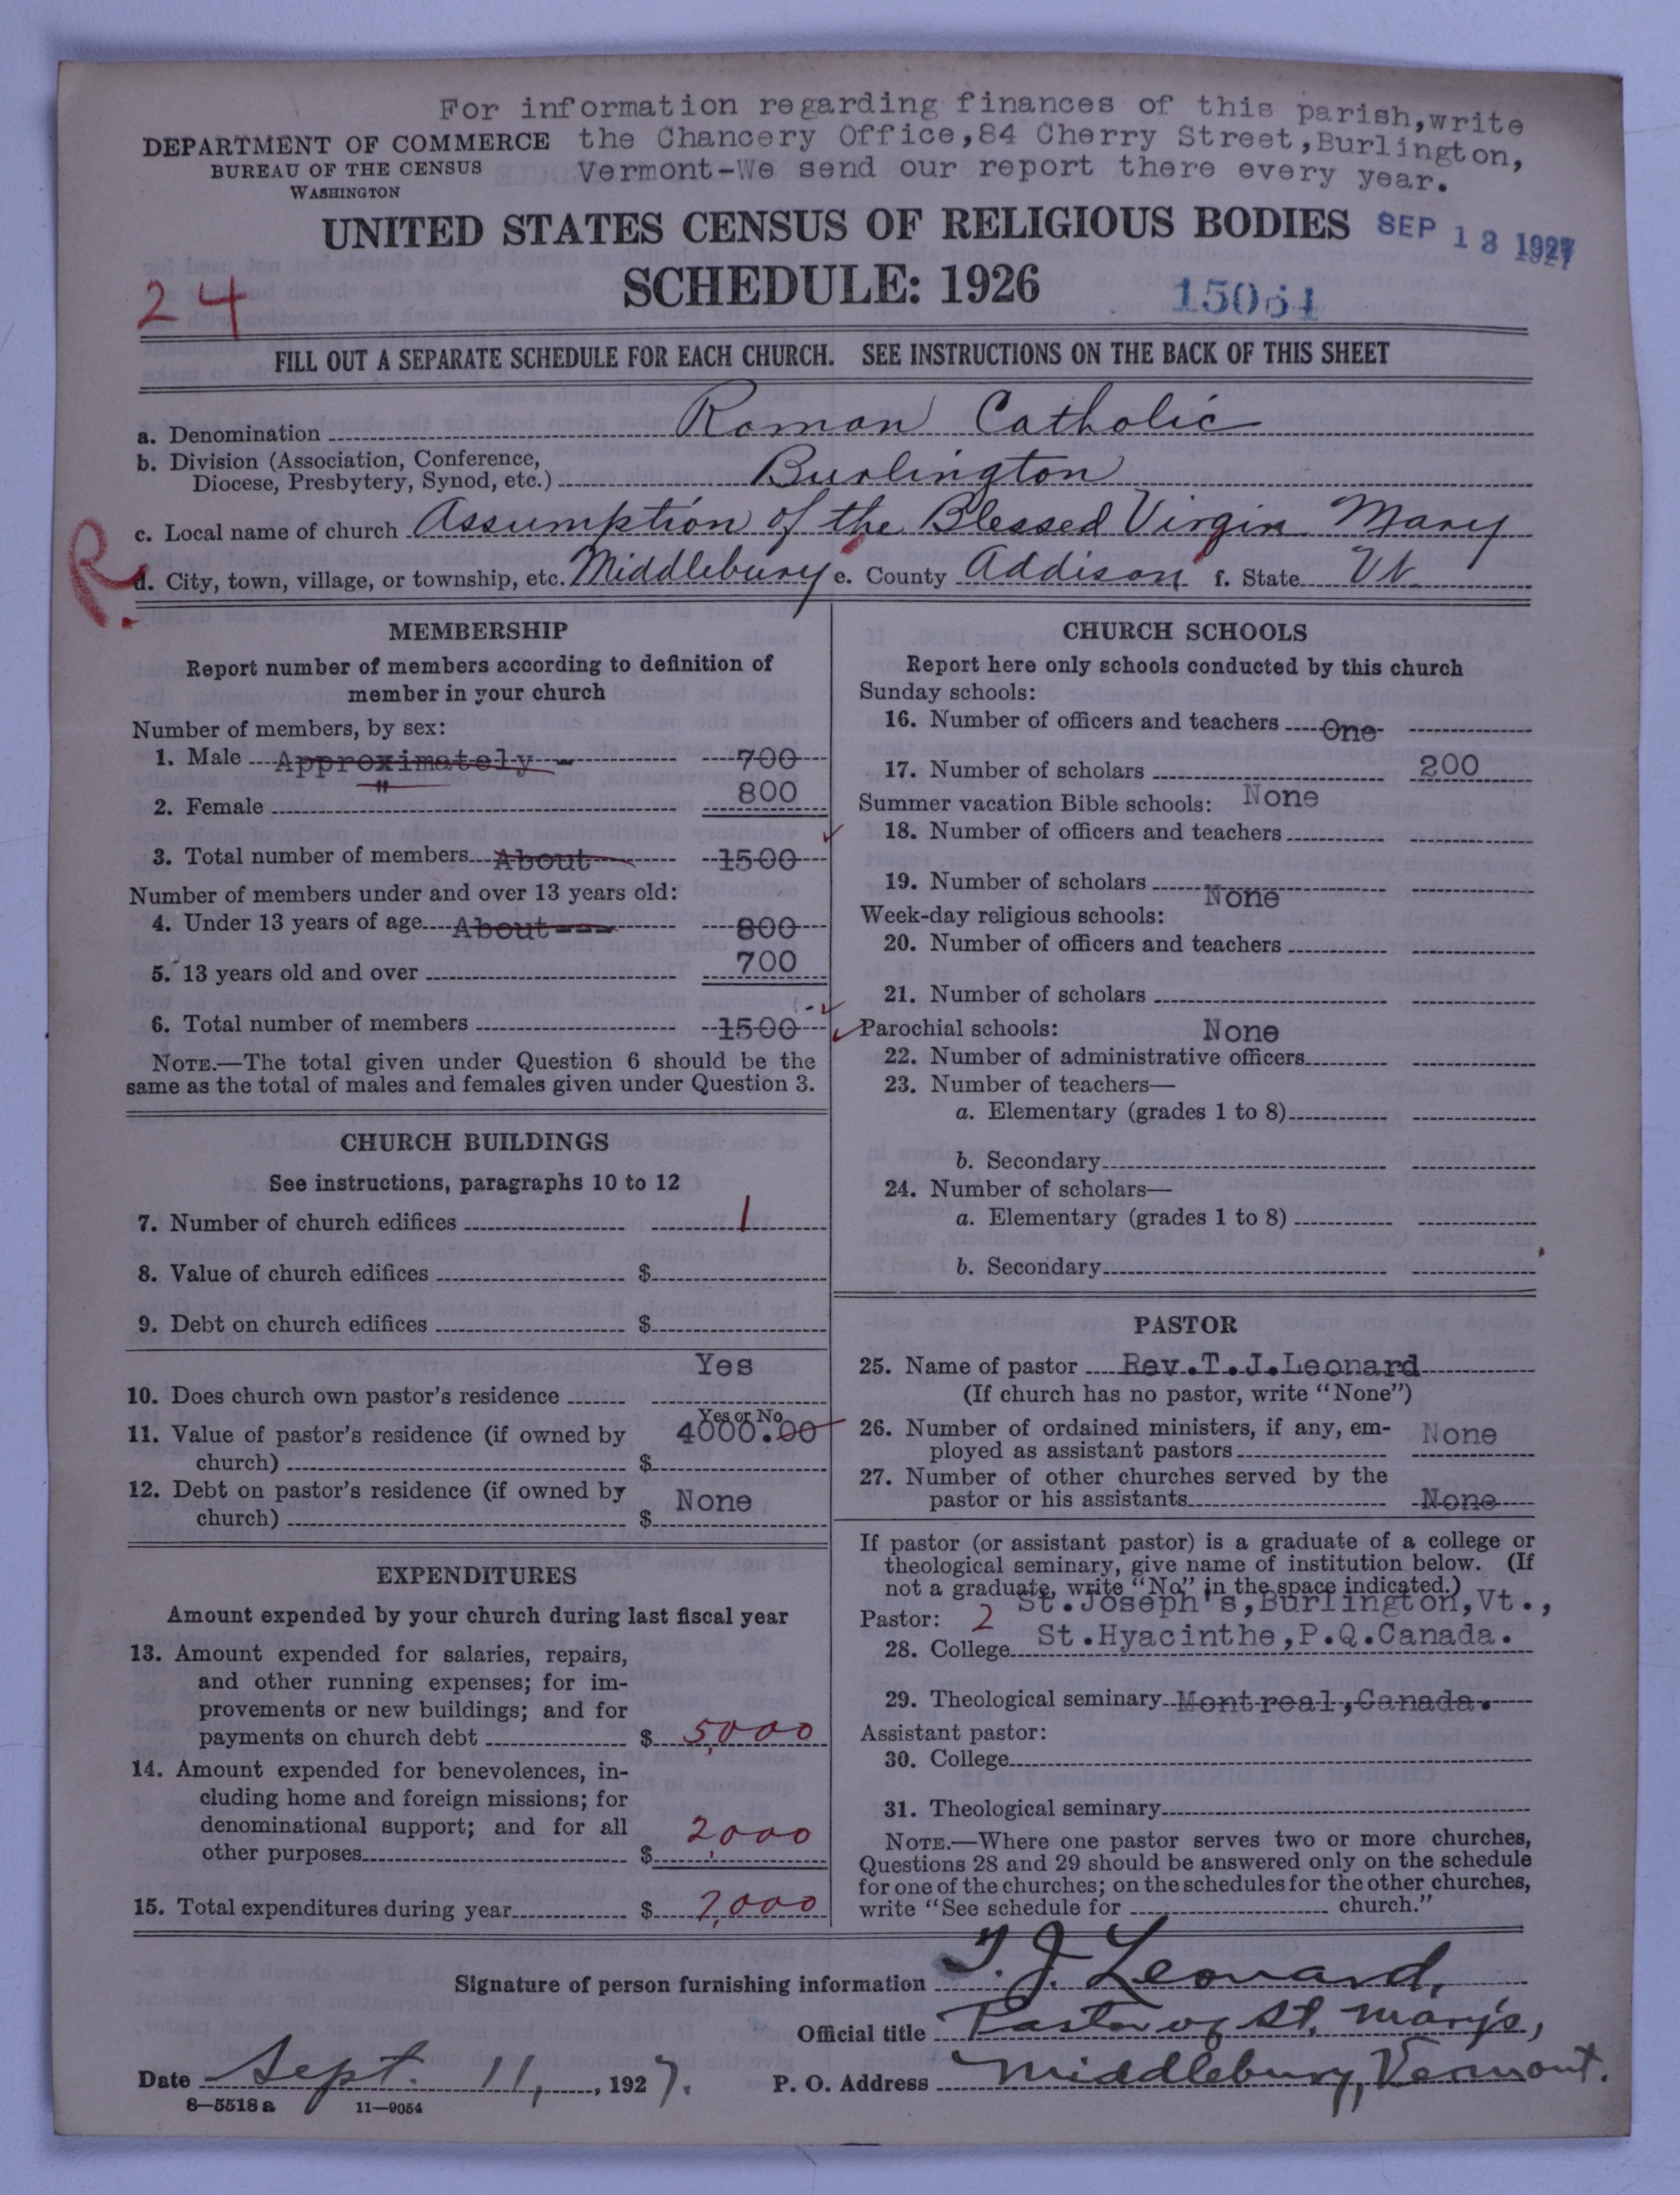 For information regarding finances of this parish,write
the Chancery Office,84 Cherry Street,Burlington,
Vermont-We send our report there every year.
DEPARTMENT OF COMMERCE
BUREAU OF THE CENSUS
WASHINGTON
UNITED STATES CENSUS OF RELIGIOUS BODIES
SEP 13 1927
SCHEDULE: 1926
24
15061
FILL OUT A SEPARATE SCHEDULE FOR EACH CHURCH. SEE INSTRUCTIONS ON THE BACK OF THIS SHEET
a. Denomination Roman Catholic
b. Division (Association, Conference,
Diocese, Presbytery, Synod, etc.) Burlington
c. Local name of church Assumption of the Blessed Virgin Mary
R.
d. City, town, village, or township, etc. Middlebury e. County Addison f. State Vt.
MEMBERSHIP
Report number of members according to definition of
member in your church
Number of members, by sex:
1. Male Approximately - 700
"
2. Female 800
3. Total number of members About 1500
Number of members under and over 13 years old:
4. Under 13 years of age About --- 800
5. 13 years old and over 700
6. Total number of members 1500
NOTE.—The total given under Question 6 should be the
same as the total of males and females given under Question 3.
CHURCH BUILDINGS
See instructions, paragraphs 10 to 12
7. Number of church edifices 1
8. Value of church edifices $
9. Debt on church edifices $
Yes
10. Does church own pastor's residence
Yes or No
11. Value of pastor's residence (if owned by 4000.00
church) $
12. Debt on pastor's residence (if owned by None
church) $
EXPENDITURES
Amount expended by your church during last fiscal year
13. Amount expended for salaries, repairs,
and other running expenses; for im-
provements or new buildings; and for
payments on church debt $ 5,000
14. Amount expended for benevolences, in-
cluding home and foreign missions; for
denominational support; and for all
other purposes $ 2,000
15. Total expenditures during year $ 7,000
CHURCH SCHOOLS
Report here only schools conducted by this church
Sunday schools:
16. Number of officers and teachers One
17. Number of scholars 200
Summer vacation Bible schools: None
18. Number of officers and teachers
19. Number of scholars
None
Week-day religious schools:
20. Number of officers and teachers
21. Number of scholars
Parochial schools: None
22. Number of administrative officers
23. Number of teachers—
a. Elementary (grades 1 to 8)
b. Secondary
24. Number of scholars—
a. Elementary (grades 1 to 8)
b. Secondary
PASTOR
25. Name of pastor Rev.T.J.Leonard
(If church has no pastor, write "None")
26. Number of ordained ministers, if any, em-
ployed as assistant pastors None
27. Number of other churches served by the
pastor or his assistants None
If pastor (or assistant pastor) is a graduate of a college or
theological seminary, give name of institution below. (If
not a graduate, write "No" in the space indicated.)
St.Joseph's,Burlington,Vt.,
Pastor: 2
28. College St.Hyacinthe,P.Q.Canada.
29. Theological seminary Montreal,Canada.
Assistant pastor:
30. College
31. Theological seminary
NOTE.—Where one pastor serves two or more churches,
Questions 28 and 29 should be answered only on the schedule
for one of the churches; on the schedules for the other churches,
write "See schedule for church."
Signature of person furnishing information T. J. Leonard,
Official title Pastor of St. Mary's,
Date Sept. 11, 1927. P. O. Address Middlebury, Vermont.
8—5518 a 11—9054